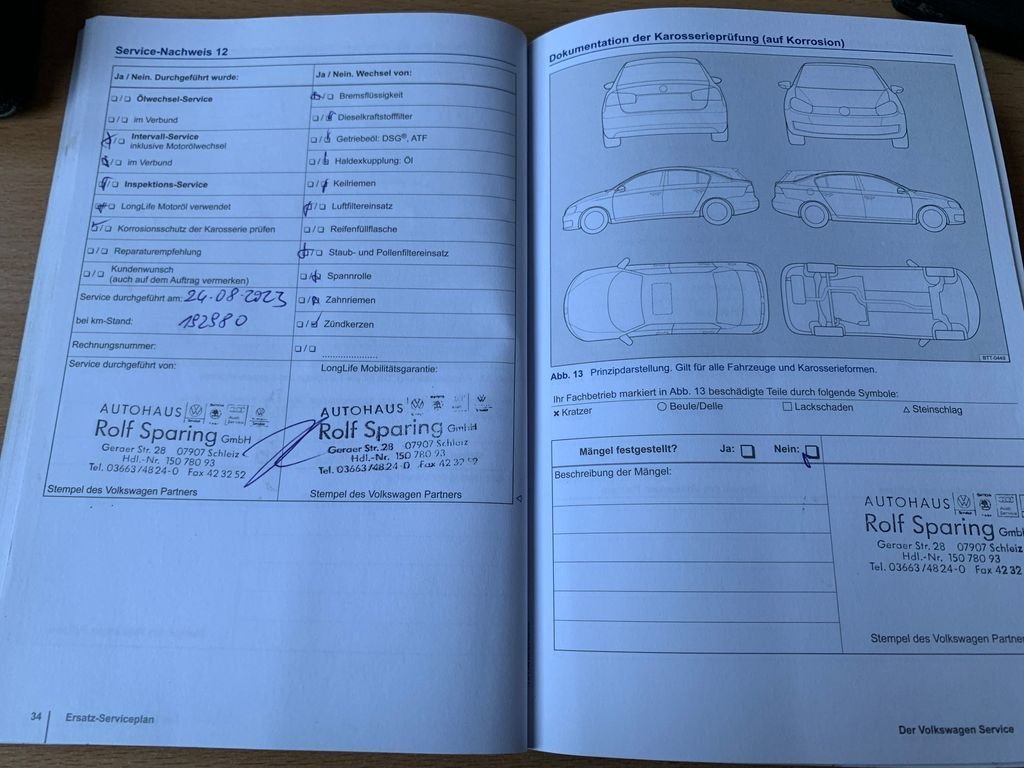 Service-Nachweis 12
Ja / Nein. Durchgeführt wurde:
❑ / ❑ Ölwechsel-Service
❑ / ❑ im Verbund
❑ / ❑ Intervall-Service
inklusive Motorölwechsel
❑ / ❑ im Verbund
❑ / ❑ Inspektions-Service
❑ / ❑ LongLife Motoröl verwendet
❑ / ❑ Korrosionsschutz der Karosserie prüfen
❑ / ❑ Reparaturempfehlung
❑ / ❑ Kundenwunsch
(auch auf dem Auftrag vermerken)
Service durchgeführt am: 24.08.2023
bei km-Stand: 192980
Rechnungsnummer:
Service durchgeführt von:
AUTOHAUS
Rolf Sparing GmbH
Geraer Str. 28 07907 Schleiz
Hdl.-Nr. 150 780 93
Tel. 03663/4824-0 Fax 42 32 52
Stempel des Volkswagen Partners
Ja / Nein. Wechsel von:
❑ / ❑ Bremsflüssigkeit
❑ / ❑ Dieselkraftstofffilter
❑ / ❑ Getriebeöl: DSG®, ATF
❑ / ❑ Haldexkupplung: Öl
❑ / ❑ Keilriemen
❑ / ❑ Luftfiltereinsatz
❑ / ❑ Reifenfüllflasche
❑ / ❑ Staub- und Pollenfiltereinsatz
❑ / ❑ Spannrolle
❑ / ❑ Zahnriemen
❑ / ❑ Zündkerzen
❑ / ❑ ....................
LongLife Mobilitätsgarantie:
AUTOHAUS
Rolf Sparing GmbH
Geraer Str. 28 07907 Schleiz
Hdl.-Nr. 150 780 93
Tel. 03663/4824-0 Fax 42 32 52
Stempel des Volkswagen Partners
34 Ersatz-Serviceplan
Dokumentation der Karosserieprüfung (auf Korrosion)
BTT-0449
Abb. 13 Prinzipdarstellung. Gilt für alle Fahrzeuge und Karosserieformen.
Ihr Fachbetrieb markiert in Abb. 13 beschädigte Teile durch folgende Symbole:
× Kratzer ○ Beule/Delle □ Lackschaden △ Steinschlag
Mängel festgestellt? Ja: ❑ Nein: ❑
Beschreibung der Mängel:
AUTOHAUS
Rolf Sparing GmbH
Geraer Str. 28 07907 Schleiz
Hdl.-Nr. 150 780 93
Tel. 03663/4824-0 Fax 42 32
Stempel des Volkswagen Partner
Der Volkswagen Service